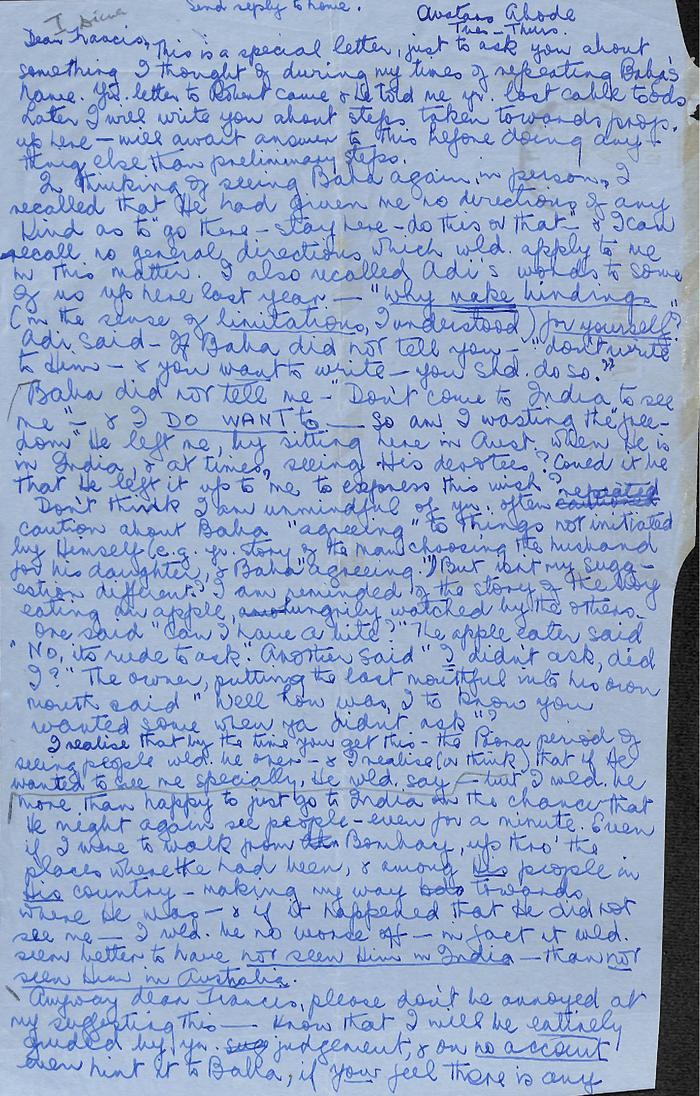 Send reply to home.
Avatars Abode
Tues - Thurs.
Dear Francis, This is a special letter, just to ask you about
something I thought of during my times of repeating Baba's
name. Yr. letter to Robert came & he told me yr. last cable to ods.
Later I will write you about steps taken towards prop.
up here - will await answer to this before doing any-
thing else than preliminary steps.
In thinking of seeing Baba again, in person, I
recalled that He had given me no directions of any
kind as to "go there - stay here - do this or that" & I can
recall no general directions which wld. apply to me
in this matter. I also recalled Adi's words to some
of us up here last year - "why make binding
(in the sense of limitations, I understood) for yourself?"
Adi said - If Baba did not tell you - "don't write
to Him - & you want to write - you shd. do so."
Baba did not tell me - "Don't come to India to see
me" - & I DO WANT to - So am I wasting the "free-
dom" He left me, by sitting here in Aust. when He is
in India, & at times, seeing His devotees? Could it be
that He left it up to me to express this wish?
Don't think I am unmindful of yr. often repeated
caution about Baba "agreeing" to things not initiated
by Himself (e.g. yr. story of the man choosing the husband
for his daughter, & Baba "agreeing.") But isn't my sugg-
estion different? I am reminded of the story of the boy
eating an apple, hungrily watched by the others.
One said "Can I have a bite?" The apple eater said
"No, its rude to ask". Another said "I didn't ask, did
I?" The owner, putting the last mouthful into his own
mouth said "Well how was I to know you
wanted some when ya didn't ask"?
I realise that by the time you get this - the Poona period of
seeing people wld. be over - & I realise (or think) that if He
wanted to see me specially, He wld. say - but I wld. be
more than happy to just go to India on the chance that
He might again see people - even for a minute. Even
if I were to walk from Bombay, up thro' the
places where He had been, & among His people in
His country - making my way towards
where He was - & if it happened that He did not
see me - I wld. be no worse off - in fact it wld.
seem better to have not seen Him in India - than not
seen Him in Australia.
Anyway dear Francis, please don't be annoyed at
my suggesting this - know that I will be entirely
guided by yr. judgement, & on no account
even hint it to Baba, if your feel there is any